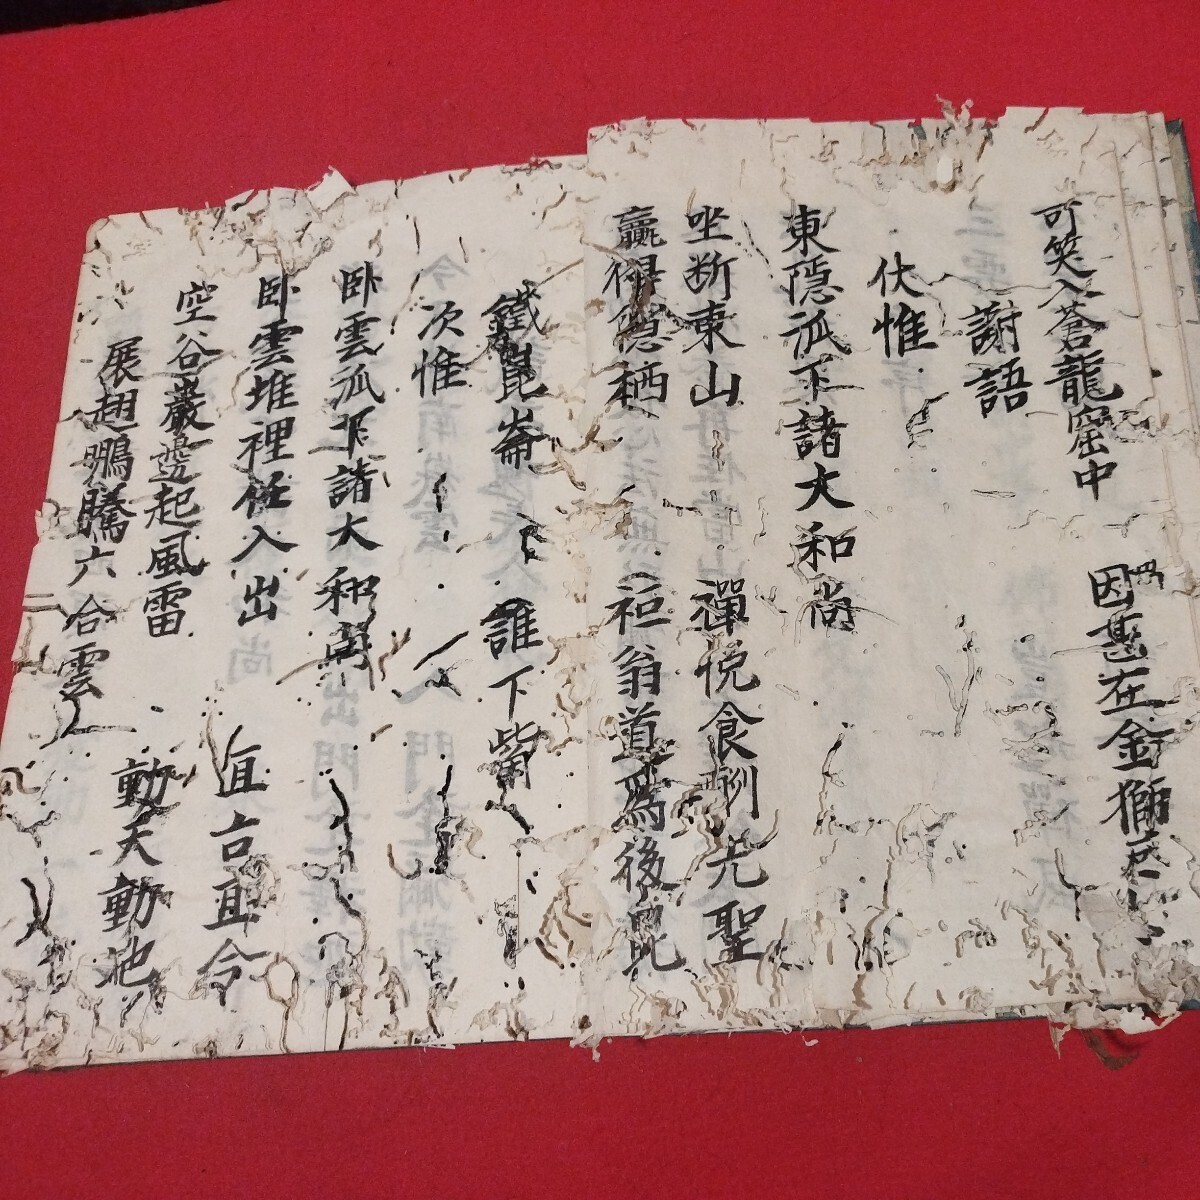 可笑入蒼龍窟中 因甚在金獅
謝語
伏惟
東隠派下諸大和尚
坐断東山 禪悦食酬先聖
贏得隠栖 祖翁道爲後昆
鐵崑崙 誰下觜
次惟
卧雲派下諸大和尚
卧雲堆裡任入出 直古直今
空谷巖邊起風雷 動天動地
展翅鵬騰六合雲